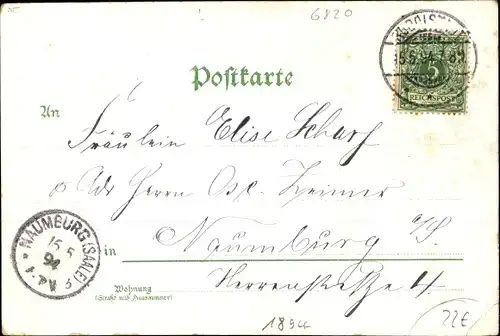 6820
Postkarte
5
REICHSPOST
15.5.94
An
Fräulein Elise Scharf
Adr Herrn Osc. Zeimer
in Naumburg a/S.
NAUMBURG (SAALE)
15 5
94
Wohnung
(Straße und Hausnummer)
Herrenstraße 4
1894
22€